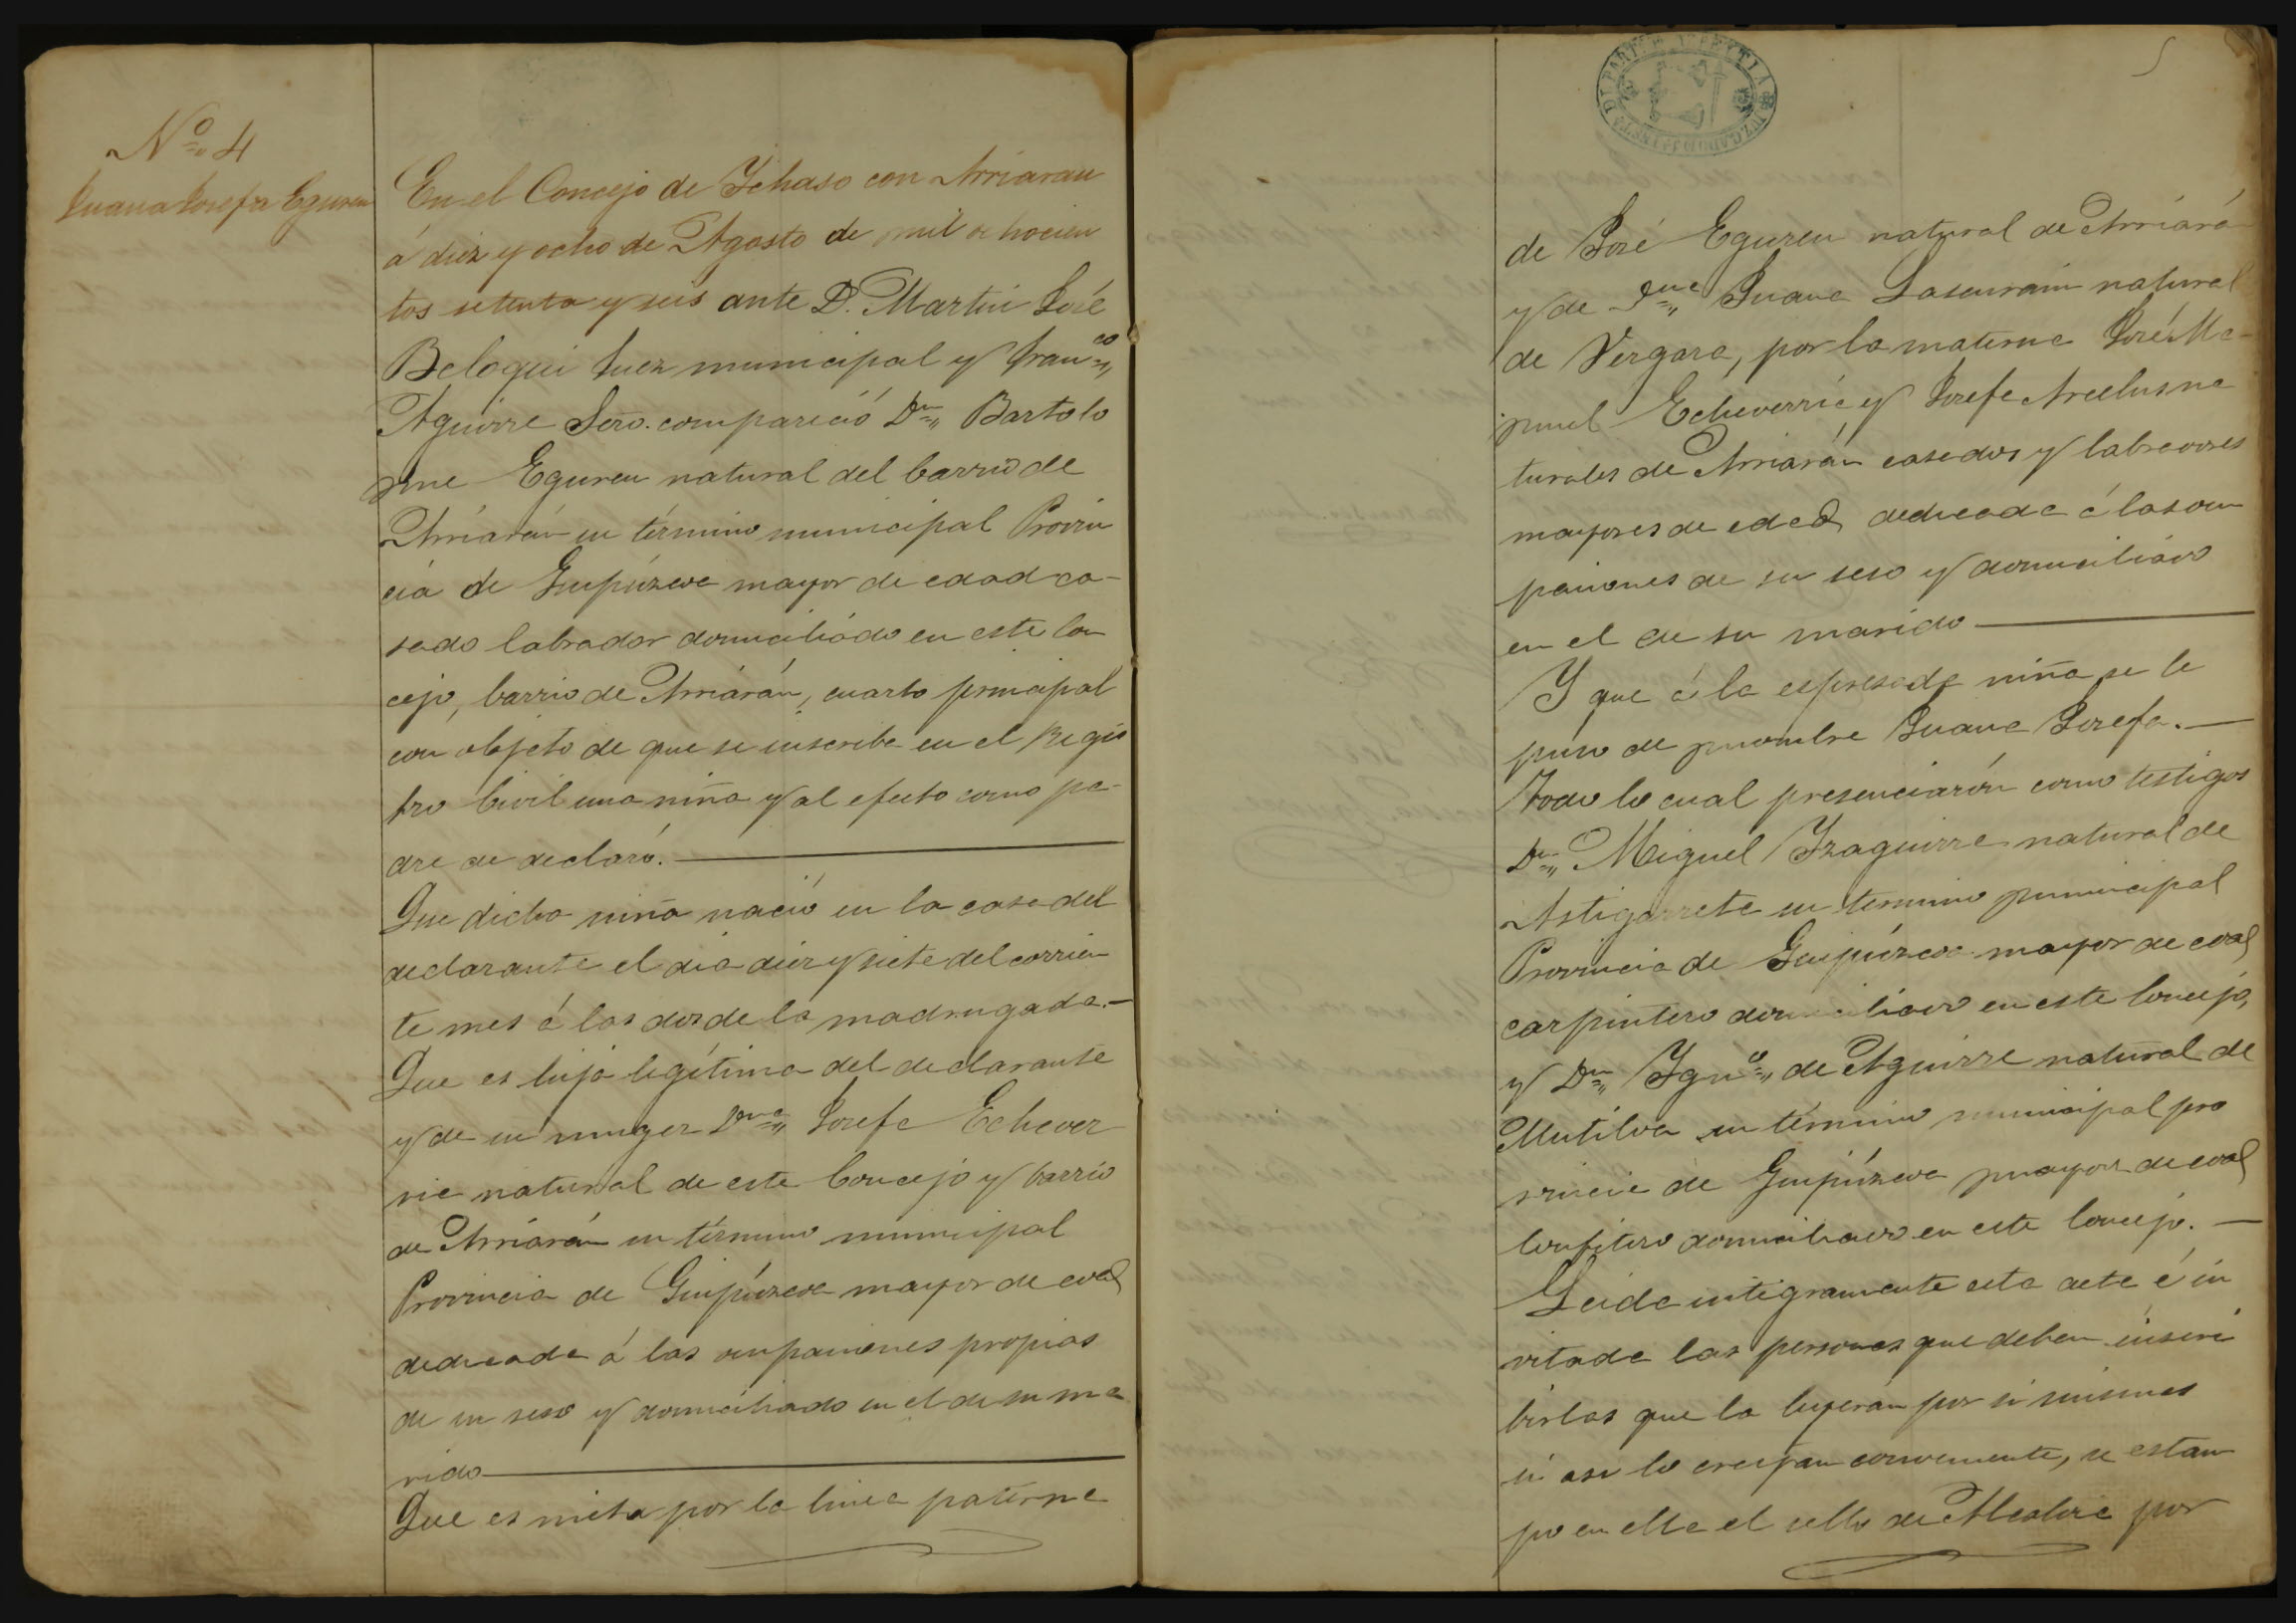 Nº 4
Juana Josefa Eguren
En el Concejo de Ychaso con Arriaran
á diez y ocho de Agosto de mil ochocien
tos setenta y seis ante D. Martin José
Beloqui Juez municipal y Franco
Aguirre Serio. compareció Dn Bartolo
me Eguren natural del barrio de
Arriarán su término municipal Provin
cia de Guipúzcoa mayor de edad ca-
sado labrador domiciliado en este Con
cejo, barrio de Arriarán, cuarto principal
con objeto de que se inscriba en el Regis
tro Civil una niña y al efecto como pa-
dre de declaró.
Que dicha niña nació en la casa del
declarante el dia diez y siete del corrien
te mes á las dos de la madrugada.—
Que es hija legítima del declarante
y de su muger Dna Josefa Echever
ria natural de este Concejo y barrio
de Arriarán su término municipal
Provincia de Guipúzcoa mayor de edad
dedicada á las ocupaciones propias
de su seso y domiciliado en el de su ma
rido
Que es nieta por la linea paterna
5
JUZGADO MUNICIPAL
PARTº DE AZPEYTIA
de José Eguren natural de Arriará
y de Dna Juana Lascurain natural
de Vergara, por la materna José Ma-
nuel Echeverria y Josefa Arcelus na
turales de Arriarán casados y labradores
mayores de edad, dedicada á las ocu
paciones de su seso y domiciliado
en el de su marido
Y que á la espresada niña se le
puso de nombre Juana Josefa.—
Todo lo cual presenciarón como testigos
Dn Miguel Yzaguirre natural de
Astigarreta su termino municipal
Provincia de Guipúzcoa mayor de edad
carpintero domiciliado en este Concejo,
y Dn Ygnco de Aguirre natural de
Mutiloa su término municipal pro
vincia de Guipúzcoa mayor de edad
Confitero domiciliado en este Concejo.—
Leida integramente esta acta é in
vitada las personas que deben suscri
birlas que la leyeran por si mismas
si asi lo creyan conveniente, se estam
po en ella el sello de Alcaldia por